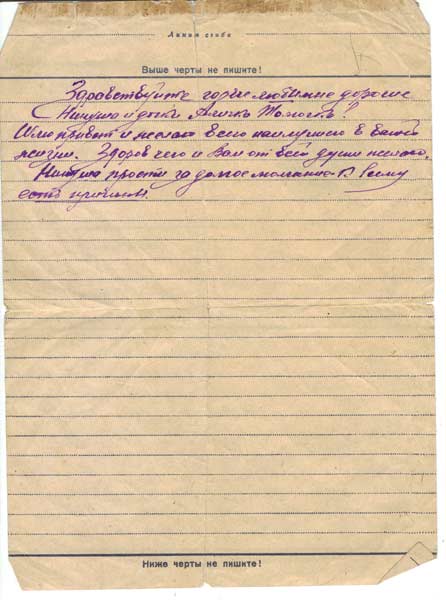 Линия сгиба
Выше черты не пишите!
Здравствуйте горячо любимые дорогие
Нинуша и детки Аличка Толочка!
Шлю привет и желаю всего наилучшего в вашей
жизни. Здоров чего и Вам от всей души желаю.
Нинуша прости за долгое молчание в сему
есть причины.
Ниже черты не пишите!